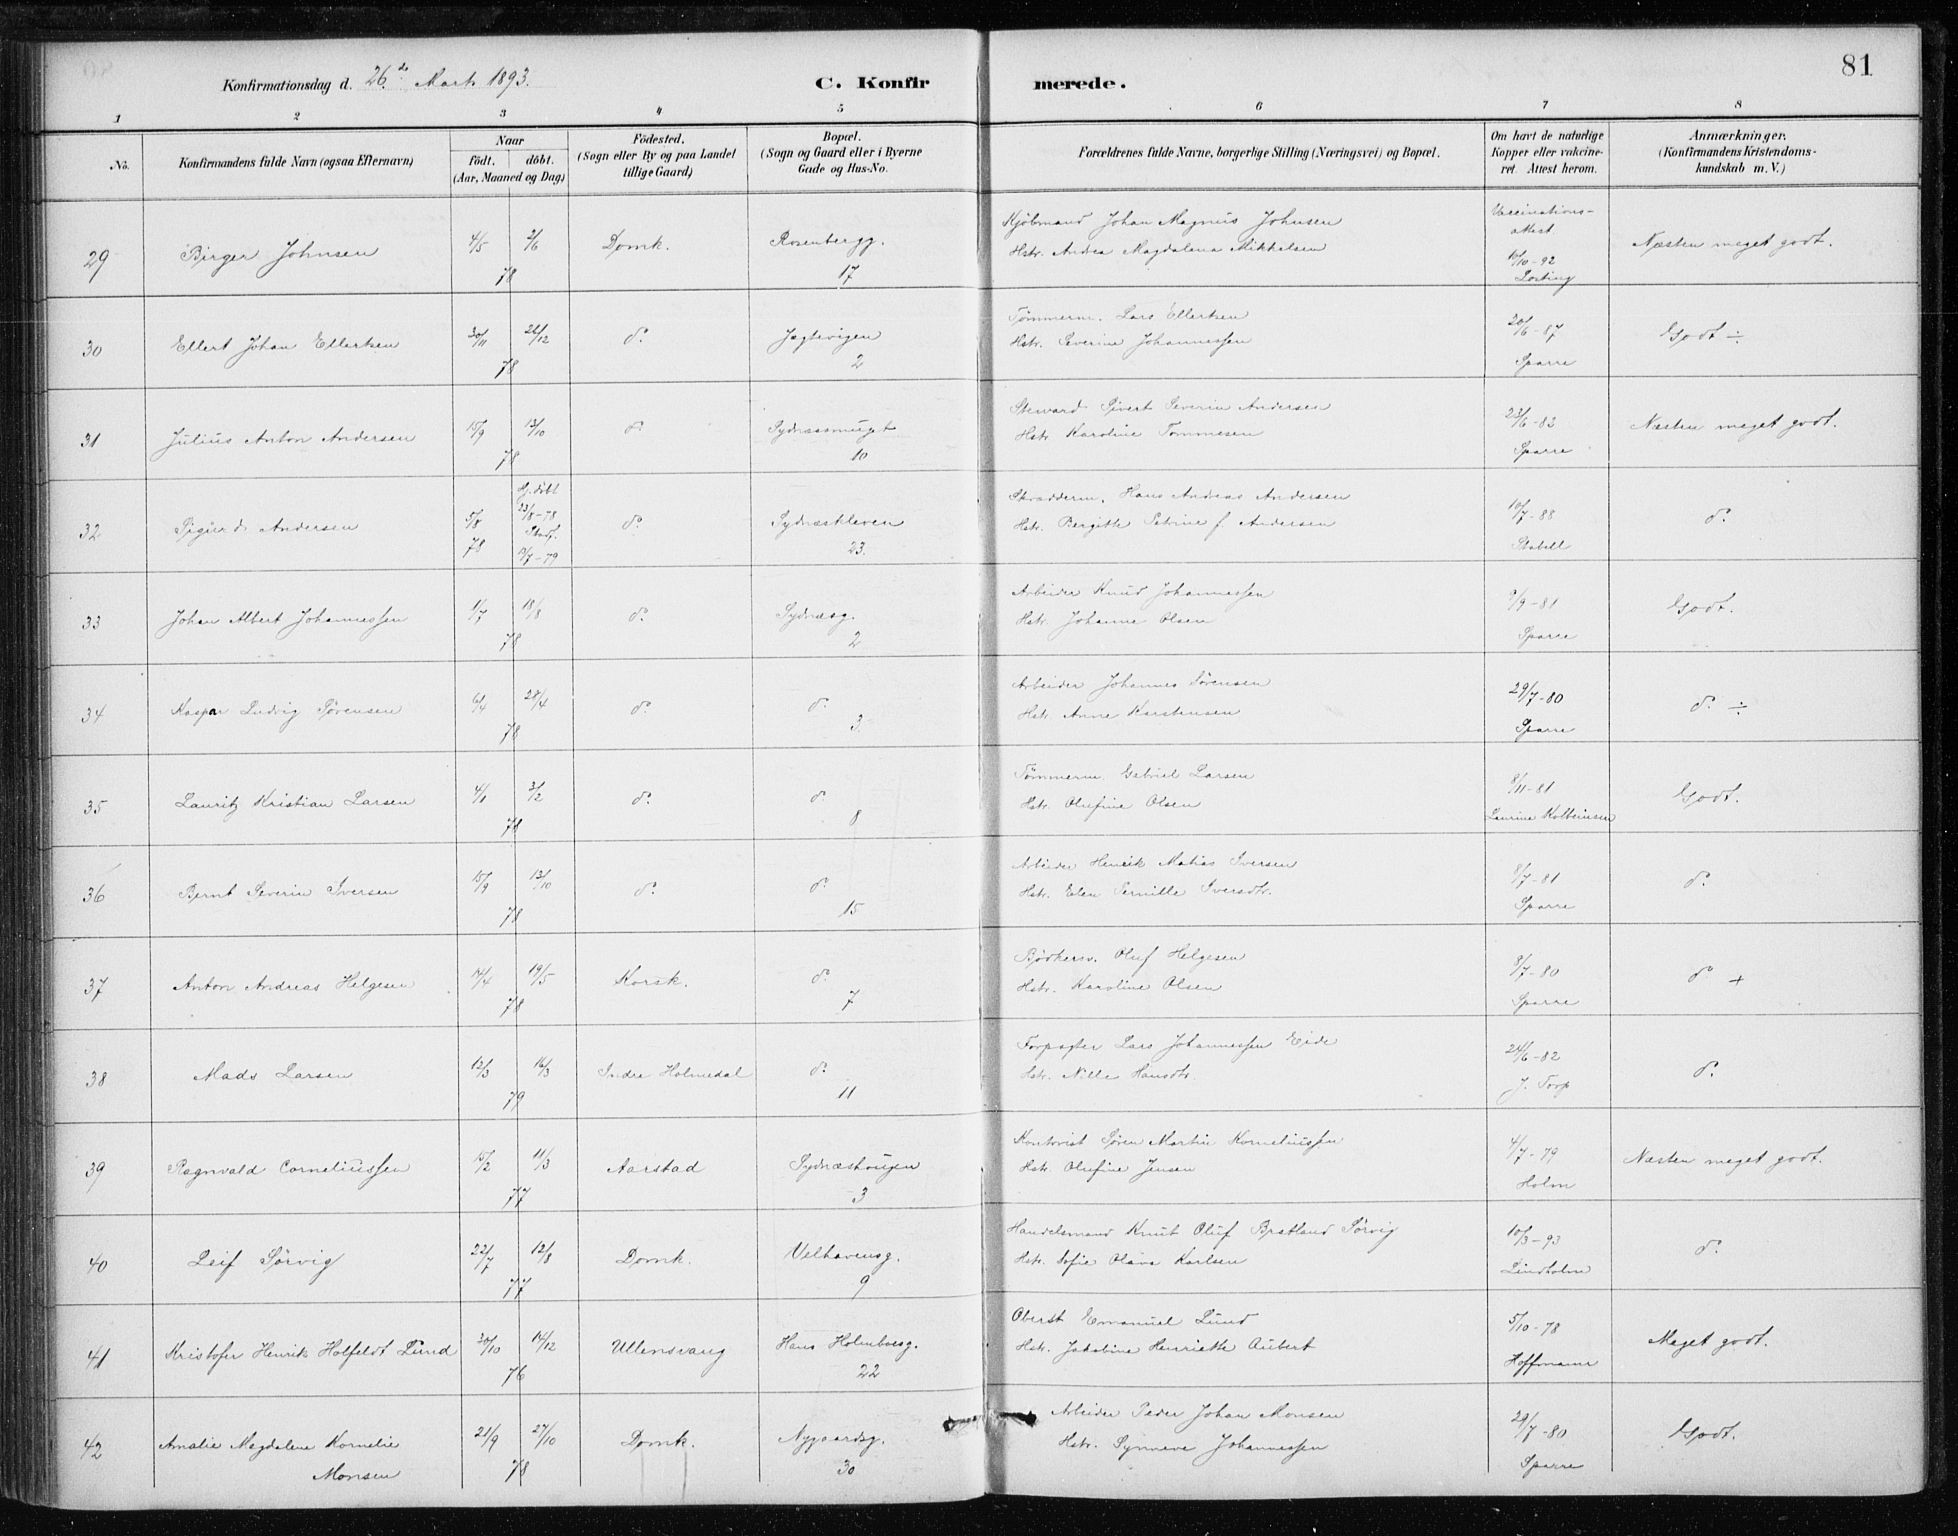 81
Konfirmationsdag d. 26de Marts 1893.
C. Konfirmerede.
1 2 3 4 5 6 7 8
No.
Konfirmandens fulde Navn (ogsaa Efternavn)
Naar
födt. döbt.
(Aar, Maaned og Dag)
Födested.
(Sogn eller By og paa Landet
tillige Gaard)
Bopæl.
(Sogn og Gaard eller i Byerne
Gade og Hus-No.
Forældrenes fulde Navne, borgerlige Stilling (Næringsvei) og Bopæl.
Om havt de naturlige
Kopper eller vakcine-
ret Attest herom.
Anmærkninger.
(Konfirmandens Kristendoms-
kundskab m. V.)
29 Birger Johnsen 4/5 2/6 78 Domk. Rosenbergg. 17
Kjöbmand Johan Magnus Johnsen
Hstr. Andrea Magdalena Mikkelsen
Vaccinations-
attest
10/10-92
Næsten meget godt.
30 Ellert Johan Ellertsen 30/11 26/12 78 do. Jægtevigen 2
Tømmerm. Lars Ellertsen
Hstr. Severine Johannessen
20/6-87
Sparre
Godt ÷
31 Julius Anton Andersen 15/9 13/10 78 do. Sydnæssmugt 10
Steward Sivert Severin Andersen
Hstr. Karoline Tommesen
23/6-83
Sparre
Næsten meget godt.
32 Sigurd Andersen 5/8 78 Hj. döbt 23/8-78 Stadf. 13/7-79 do. Sydnæskleven 23.
Skrædderm. Hans Andreas Andersen
Hstr. Bergitte Petrine f. Andersen
10/7-88
Stabell
do.
33 Johan Albert Johannessen 1/7 18/8 78 do. Sydnæsg. 2
Arbeider Knud Johannessen
Hstr. Johanne Olsen
9/9-81
Sparre
Godt.
34 Kaspar Ludvig Sørensen 6/4 28/4 78 do. do. 3.
Arbeider Johannes Sørensen
Hstr. Anne Karstensen
29/7-80
Sparre
do. ÷
35 Lauritz Kristian Larsen 4/1 3/2 78 do. do. 8
Tømmerm. Gabriel Larsen
Hstr. Olufine Olsen
8/11-81
Laurine Kolbeinsen
Godt.
36 Bernt Severin Iversen 15/9 13/10 78 do. do. 15
Arbeider Henrik Matias Iversen
Hstr. Elen Pernille Iversdtr.
8/7-81
Sparre
do.
37 Anton Andreas Helgesen 14/4 19/5 78 Korsk. do. 7
Bødkersv. Oluf Helgesen
Hstr. Karoline Olsen
8/7-80
Sparre
do +
38 Mads Larsen 12/3 16/3 79 Indre Holmedal do. 11
Forpagter Lars Johannessen Eide
Hstr. Nille Hansdtr.
24/6-82
J. Torp
do.
39 Ragnvald Corneliussen 15/2 11/3 77 Aarstad Sydnæshougen 3
Kontorist Søren Martin Korneliussen
Hstr. Olufine Jensen
4/7-79
Holm
Næsten meget godt.
40 Leif Sørvig 22/7 12/8 77 Domk. Velhavensg. 9
Handelsmand Knut Oluf Bratland Sørvig
Hstr. Sofie Olava Karlsen
10/3-93
Lindholm
do.
41 Kristofer Henrik Holfeldt Lund 30/10 14/12 76 Ullensvang Hans Holmboesg. 22
Oberst Emanuel Lund
Hstr. Jakobine Henriette Aubert
5/10-78
Hoffmann
Meget godt.
42 Amalie Magdalene Kornelie
Monsen 21/9 27/10 78 Domk. Nygaardsg. 30
Arbeider Peder Johan Monsen
Hstr. Synneve Johannessen
29/7-80
Sparre
Godt.